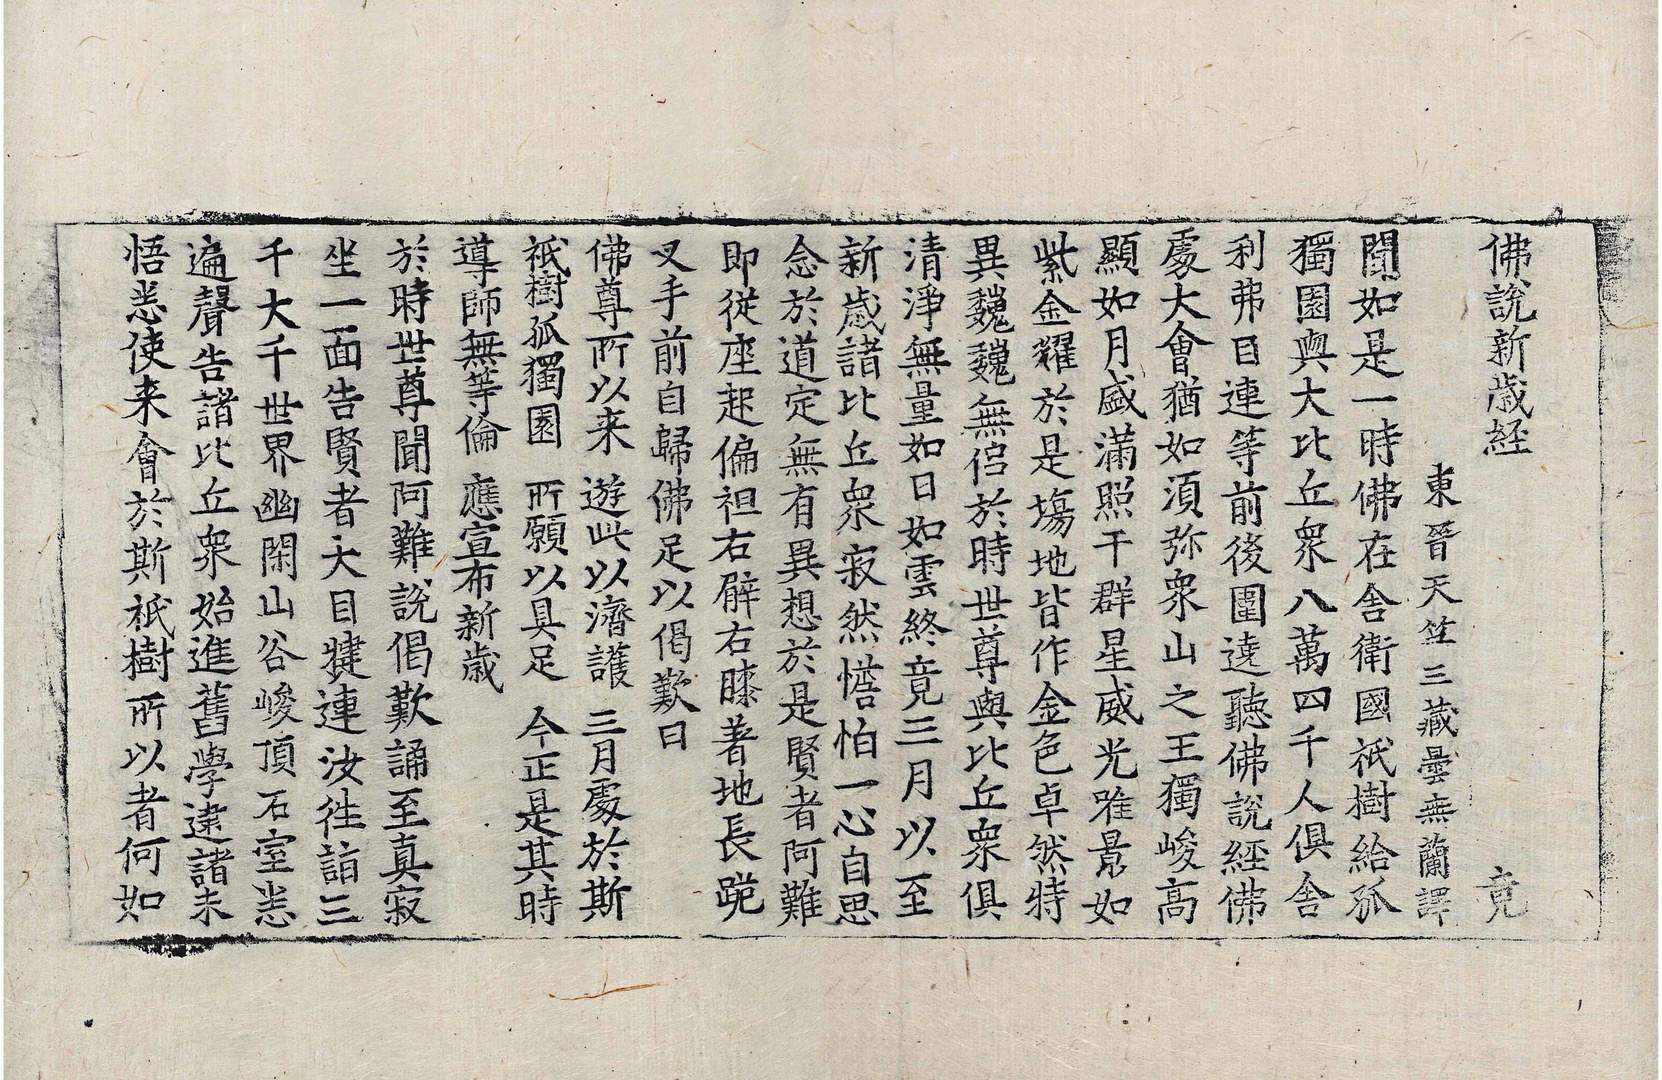 佛說新歲経 竟
東晉天竺三藏曇無蘭譯
聞如是一時佛在舍衛國祇樹給孤
獨園與大比丘衆八萬四千人俱舍
利弗目連等前後圍遶聽佛說経佛
處大會猶如須弥衆山之王獨峻高
顯如月盛滿照干群星威光唯景如
紫金耀於是塲地皆作金色卓然特
異巍巍無侣於時世尊與比丘衆俱
清淨無量如日如雲終竟三月以至
新歲諸比丘衆寂然憺怕一心自思
念於道定無有異想於是賢者阿難
即從座起偏袒右臂右膝著地長跪
叉手前自歸佛足以偈歎曰
佛尊所以来 遊此以濟護 三月處於斯
祇樹孤獨園 所願以具足 今正是其時
導師無等倫 應宣布新歲
於時世尊聞阿難說偈歎誦至真寂
坐一面告賢者大目揵連汝往詣三
千大千世界幽閑山谷峻頂石室悉
遍聲告諸比丘衆始進舊學逮諸未
悟悉使来會於斯祇樹所以者何如